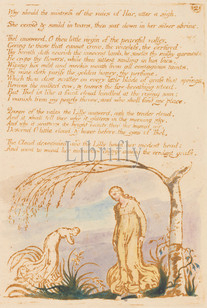 Why should the mistress of the vales of Har, utter a sigh.
She ceasd & smild in tears, then sat down in her silver shrine.
Thel answerd, O thou little virgin of the peaceful valley.
Giving to those that cannot crave, the voiceless, the o'ertired
Thy breath doth nourish the innocent lamb, he smells thy milky garments
He crops thy flowers, while thou sittest smiling in his face,
Wiping his mild and meekin mouth from all contagious taints.
Thy wine doth purify the golden honey, thy perfume,
Which thou dost scatter on every little blade of grass that springs
Revives the milked cow, & tames the fire-breathing steed.
But Thel is like a faint cloud kindled at the rising sun:
I vanish from my pearly throne, and who shall find my place.
Queen of the vales the Lilly answerd, ask the tender cloud,
And it shall tell thee why it glitters in the morning sky,
And why it scatters its bright beauty thro' the humid air.
Descend O little cloud & hover before the eyes of Thel.
The Cloud descended, and the Lilly bowd her modest head:
And went to mind her numerous charge among the verdant grass.
Librifly